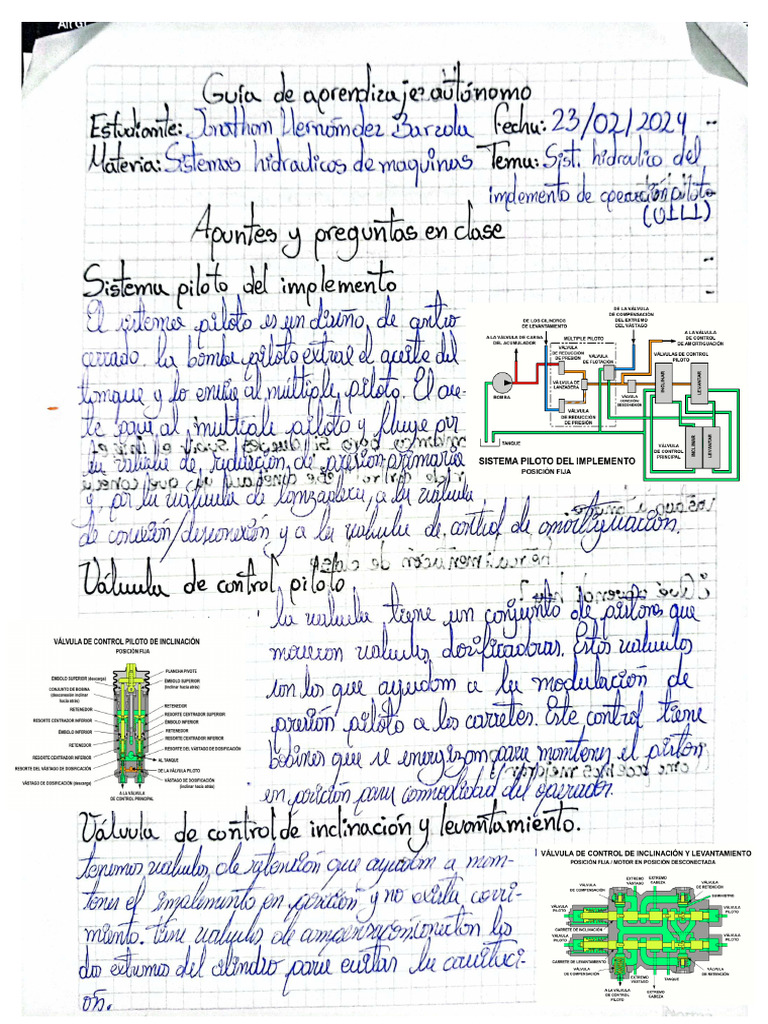 Guía de aprendizaje autónomo
Estudiante: Jonathan Hernández Barzola Fecha: 23/02/2024
Materia: Sistemas hidraulicos de maquinas Tema: Sist. hidraulico del
implemento de operación piloto
Apuntes y preguntas en clase
Sistema piloto del implemento
El sistema piloto es un diseño de centro
cerrado. la bomba piloto extrae el aceite del
tanque y lo envia al multiple piloto. El acei-
te pasa al multiple piloto y fluye por
la valvula de reducción de presion primaria
y por la valvula de lanzadera, a la valvula
de conexión/desconexión y a la valvula de control de amortiguación.
DE LA VÁLVULA
DE COMPENSACIÓN
DEL EXTREMO
DEL VÁSTAGO
DE LOS CILINDROS
DE LEVANTAMIENTO
A LA VÁLVULA DE CARGA
DEL ACUMULADOR
MÚLTIPLE PILOTO
A LA VÁLVULA
DE CONTROL
DE AMORTIGUACIÓN
VÁLVULA
DE REDUCCIÓN
DE PRESIÓN
VÁLVULA
DE FLOTACIÓN
VÁLVULAS DE CONTROL
PILOTO
BOMBA
VÁLVULA DE
LANZADERA
VÁLVULA
CONEXIÓN
DESCONEXIÓN
INCLINAR
LEVANTAR
VÁLVULA
DE REDUCCIÓN
DE PRESIÓN
TANQUE
VÁLVULA
DE CONTROL
PRINCIPAL
INCLINAR
LEVANTAR
SISTEMA PILOTO DEL IMPLEMENTO
POSICIÓN FIJA
Válvula de control piloto
la valvula tiene un conjunto de pistones que
mueven valvulas dosificadoras. Estas valvulas
son las que ayudan a la modulación de
presión piloto a los carretes. Este control tiene
bobinas que se energizan para mantener el piston
en posición para comodidad del operador.
VÁLVULA DE CONTROL PILOTO DE INCLINACIÓN
POSICIÓN FIJA
PLANCHA PIVOTE
ÉMBOLO SUPERIOR (descarga)
ÉMBOLO SUPERIOR
(inclinar hacia atrás)
CONJUNTO DE BOBINA
(desconexión inclinar
hacia atrás)
RETENEDOR
RETENEDOR
RESORTE CENTRADOR SUPERIOR
RESORTE CENTRADOR INFERIOR
ÉMBOLO INFERIOR
ÉMBOLO INFERIOR
RETENEDOR
RESORTE CENTRADOR INFERIOR
RETENEDOR
RESORTE DEL VÁSTAGO DE DOSIFICACIÓN
RESORTE CENTRADOR INFERIOR
AL TANQUE
RESORTE DEL VÁSTAGO DE DOSIFICACIÓN
DE LA VÁLVULA PILOTO
VÁSTAGO DE DOSIFICACIÓN (descarga)
VÁSTAGO DE DOSIFICACIÓN
(inclinar hacia atrás)
A LA VÁLVULA
DE CONTROL PRINCIPAL
Válvula de control de inclinación y levantamiento.
tenemos valvulas de retención que ayudan a man-
tener el implemento en posición y no exista corri-
miento. Tiene valvulas de compensacion conectan los
dos extremos del cilindro para evitar la cavitaci-
ón.
VÁLVULA DE CONTROL DE INCLINACIÓN Y LEVANTAMIENTO
POSICIÓN FIJA / MOTOR EN POSICIÓN DESCONECTADA
VÁLVULA
DE COMPENSACIÓN
EXTREMO
VÁSTAGO
EXTREMO
CABEZA
VÁLVULA
DE RETENCIÓN
VÁLVULA
PILOTO
VÁLVULA
PILOTO
CARRETE DE INCLINACIÓN
VÁLVULA
PILOTO
VÁLVULA
PILOTO
CARRETE DE LEVANTAMIENTO
VÁLVULA
DE COMPENSACIÓN
EXTREMO
VÁSTAGO
TANQUE
VÁLVULA
DE RETENCIÓN
A LA VÁLVULA
DE CONTROL
PILOTO
EXTREMO
CABEZA